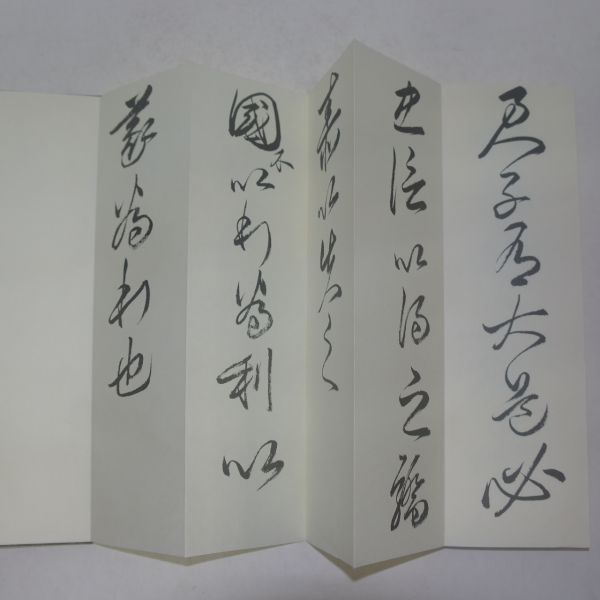 君子有大道必
忠信以得之驕
泰以失之
國不以利為利以
義為利也